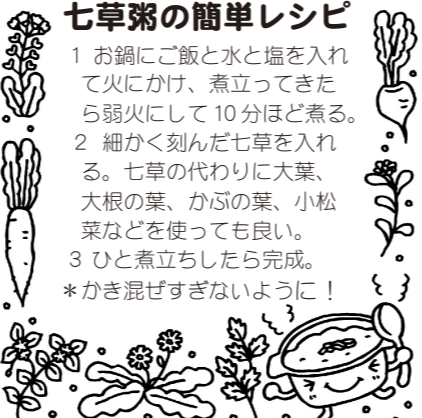 七草粥の簡単レシピ
1 お鍋にご飯と水と塩を入れ
て火にかけ、煮立ってきた
ら弱火にして10分ほど煮る。
2 細かく刻んだ七草を入れ
る。七草の代わりに大葉、
大根の葉、かぶの葉、小松
菜などを使っても良い。
3 ひと煮立ちしたら完成。
＊かき混ぜすぎないように！